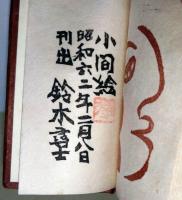 小間絵
昭和六二年二月八日
刊出 鈴木